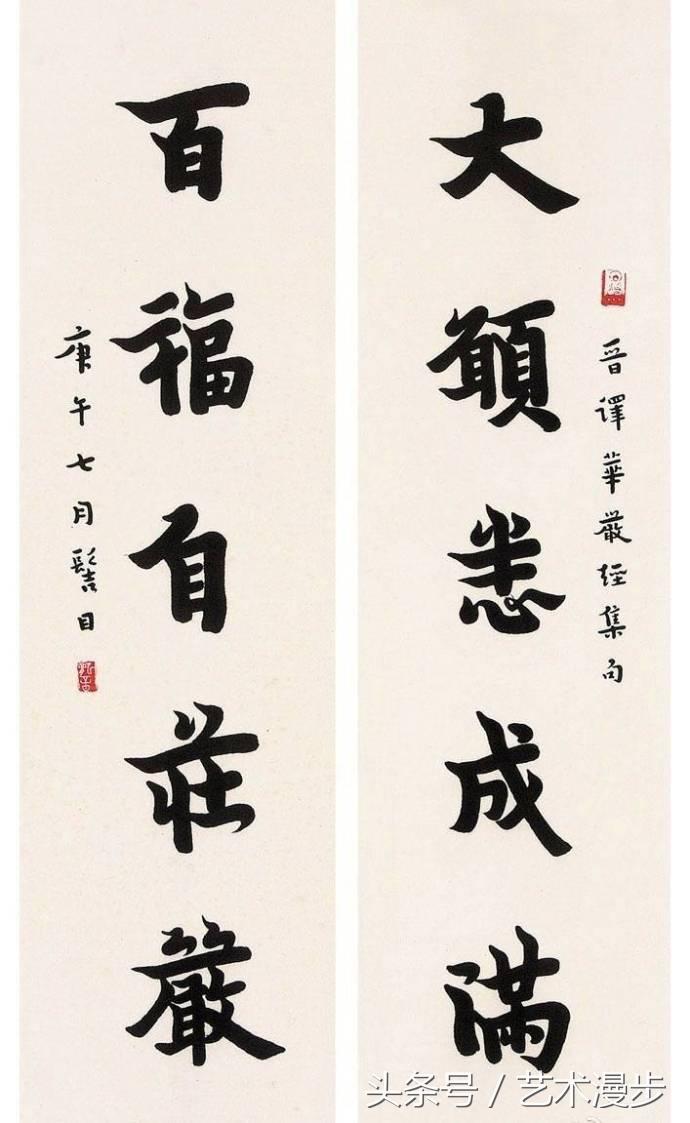 晋譯華嚴經集句
大願悉成滿
百福自莊嚴
庚午七月髻目
头条号 / 艺术漫步